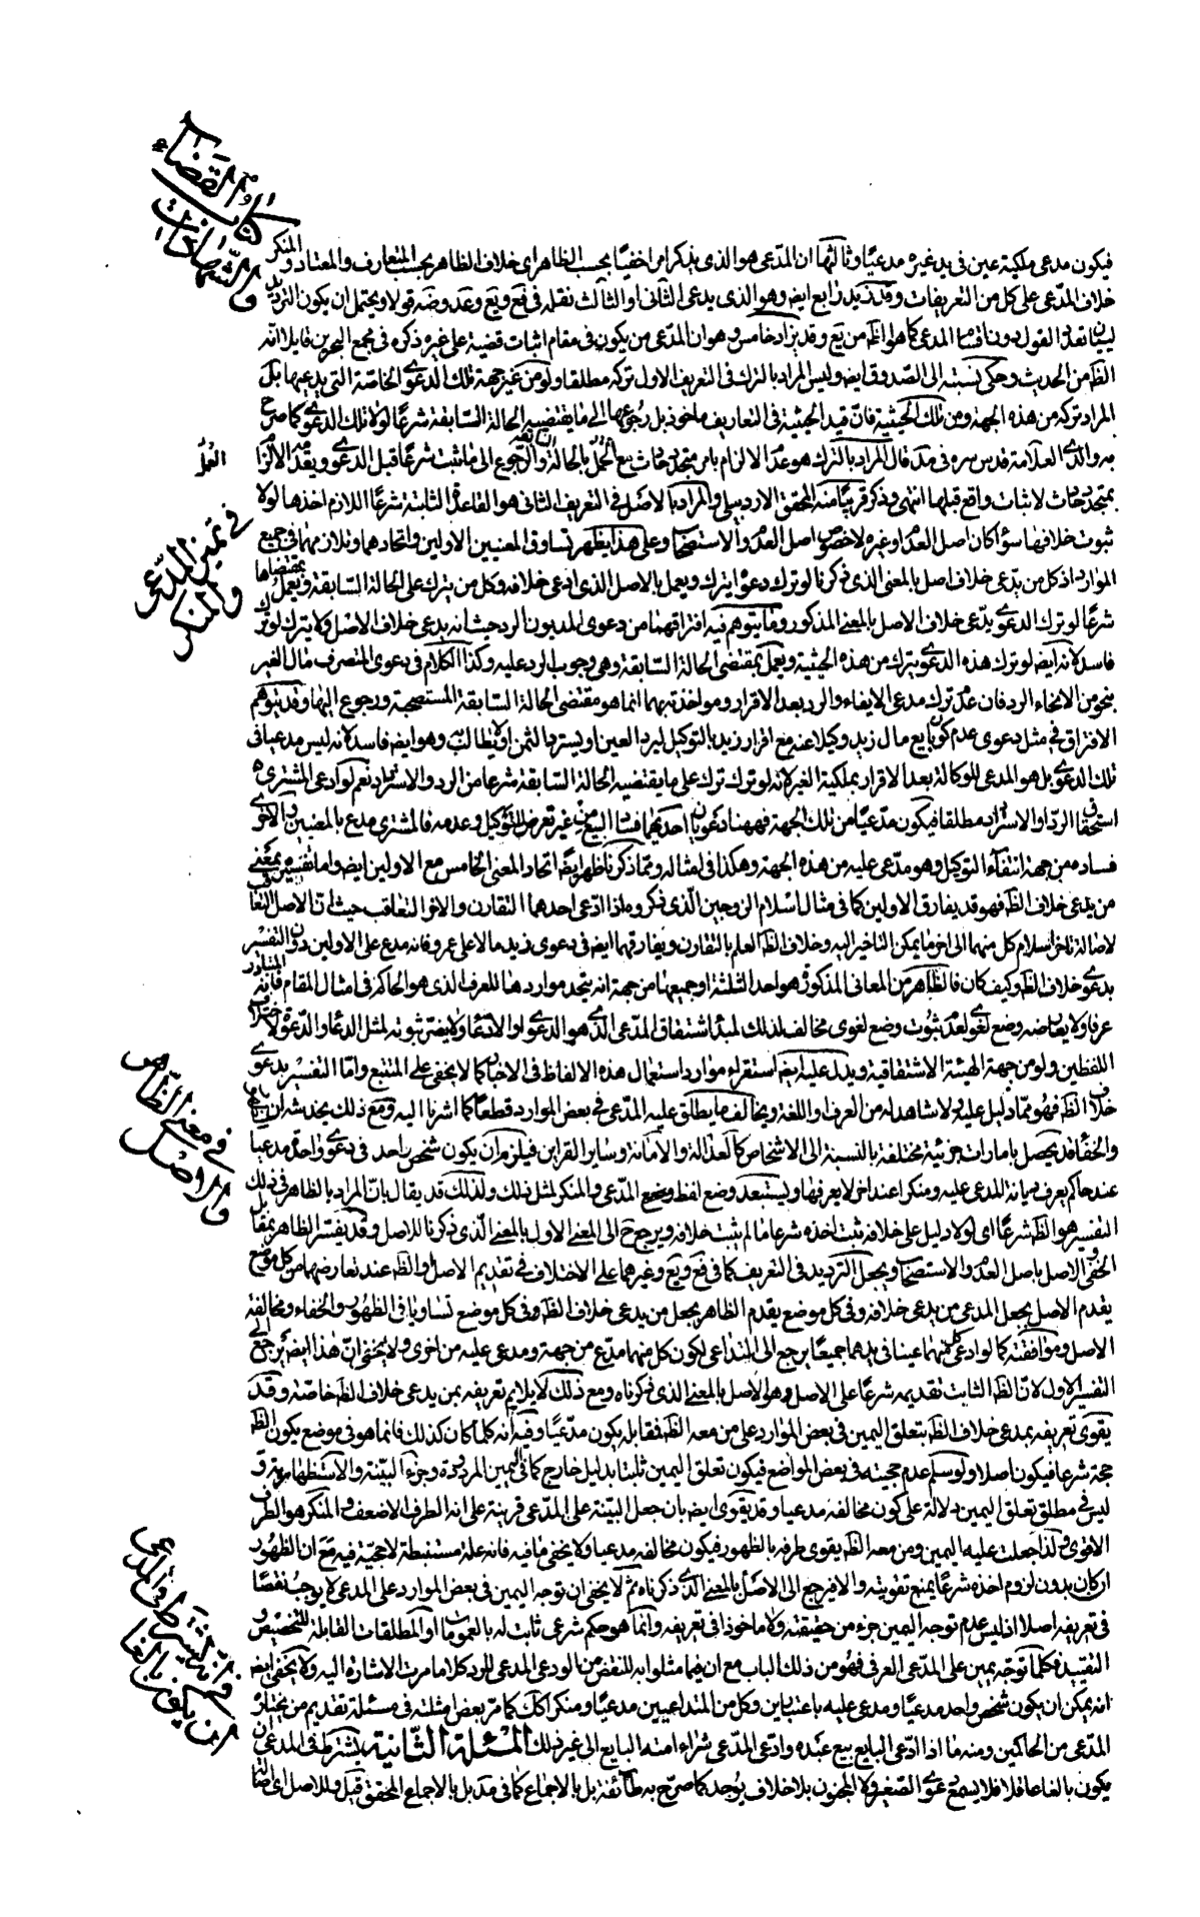 كتاب القضاء
والشهادات
فيكون مدعى ملكية عين فى يد غيره مدعيًا وثالثها ان المدّعى هو الذى يذكر امرا خفيًا بحسب الظاهر اى خلاف الظاهر بحسب المتعارف والمعتاد والمنكر
خلاف المدّعى على كل من التعريفات وقد يزيد رابع ايض وهو الذى يدعى الثانى او الثالث نقله فى قع ويع وعد وضه قولا ويحتمل ان يكون الترديد
لبيان تعدد القول دون اقسام المدعى كما هو الظ من يع وقد يزاد خامس وهو ان المدّعى من يكون فى مقام اثبات قضية على غيره ذكره فى مجمع البحرين قايلا انّه
الظ من الحديث وحكى نسبته الى الصدوق ايض وليس المراد بالترك فى التعريف الاول تركه مطلقا ولو من غير جهة تلك الدعوى الخاصّة التى يدعيها بل
المراد تركه من هذه الجهة ومن تلك الحيثية فانّ قيد الحيثية فى التعاريف ماخوذ بل رجوعها الى ما يقتضيه الحالة السّابقة شرعًا لولا تلك الدعوى كما صرح
به والدى العلامة قدس سره فى مد قال المراد بالترك هو عدم الالزام بامر متجدد حادث مع الحمل بالحالة السّابقة والرجوع الى ما ثبت شرعًا قبل الدعوى وبعدمه الالزام
بمتجدد حادث لاثبات واقع قبلها انتهى وذكر قريبًا منه المحقق الاردبيلى والمراد بالاصل فى التعريف الثانى هو القاعدة الثابتة شرعًا اللازم اخذها لولا
ثبوت خلافها سواء كان اصل العدم او غيره لا خصوص اصل العدم والاستصحاب وعلى هذا يظهر تساوق المعنيين الاولين واتحادهما وتلازمهما فى جميع
الموارد اذ كل من يدّعى خلاف اصل بالمعنى الذى ذكرنا لو ترك دعواه يترك ويعمل بالاصل الذى ادعى خلافه وكل من يترك على الحالة السّابقة ويعمل بمقتضاها
شرعًا لو ترك الدعوى يدّعى خلاف الاصل بالمعنى المذكور وما يتوهم فيه افتراقهما من دعوى المديون الرد حيث انه يدعى خلاف الاصل ولا يترك لو ترك
فاسد لانه ايض لو ترك هذه الدعوى يترك من هذه الحيثية ويعمل بمقتضى الحالة السّابقة وهى وجوب الرد عليه وكذا الكلام فى دعوى المتصرف مال الغير
بنحو من الانحاء الرد فان عدم ترك مدعى الايفاء والرد بعد الاقرار ومواخذته بهما انما هو مقتضى الحالة السّابقة المستصحبة ورجوع اليها وقد يتوهم
الافتراق فى مثل دعوى عدم كون بايع مال زيد وكيلا عنه مع اقرار زيد بالتوكيل ليرد العين او يسترد الثمن او لا يطالب به وهو ايض فاسد لانه ليس مدعيا فى
تلك الدعوى بل هو المدعى للوكالة بعد الاقرار بملكية الغير لانه لو ترك ترك على ما يقتضيه الحالة السّابقة شرعا من الرد والاسترداد نعم لو ادعى المشترى
استحقاق الردّ او الاسترداد مطلقا فيكون مدّعيًا من تلك الجهة فههنا دعويان احدهما فساد البيع من غير تعرض للتوكيل وعدمه فالمشترى مدع بالمعنيين والاخرى
فساده من جهة انتفاء التوكيل وهو مدّعى عليه من هذه الجهة وهكذا فى امثاله ومما ذكرنا ظهر ايض اتحاد المعنى الخامس مع الاولين ايض واما تفسيره بمعنى
من يدعى خلاف الظ فهو قد يفارق الاولين كما فى مثال اسلام الزوجين الّذى ذكروه اذا ادّعى احدهما التقارن والاخر التعاقب حيث انّ الاصل التقارن
لاصالة تاخر اسلام كل منهما الى اخر ما يمكن التاخير اليه وخلاف الظ العلم بالتقارن ويفارقهما ايض فى دعوى زيد مالا على عمرو فانه مدع على الاولين دون التفسير
بدعوى خلاف الظ وكيف كان فالظاهر من المعانى المذكورة هو احد الثلثة او جميعها من جهة انه يتحد مواردها للعرف الذى هو الحاكم فى امثال المقام فانّه المتبادر
عرفا ولا يعارضه وضع لغوى لعدم ثبوت وضع لغوى مخالف لذلك لمبدأ اشتقاق المدّعى الذى هو الدعوى او الادّعاء ولا يضرّ ثبوته لمثل الدعاء والدّعوة لاختلاف
اللفظين ولو من جهة الهيئة الاشتقاقية ويدل عليه ايض استقراء موارد استعمال هذه الالفاظ فى الاخبار كما لا يخفى على المتتبع وامّا التفسير بدعوى
خلاف الظ فهو ممّا دليل عليه ولا شاهد له من العرف او اللغة ويخالف ما يطلق عليه المدّعى فى بعض الموارد قطعًا كما اشرنا اليه ومع ذلك يخدشه ان الظهور
والخفاء قد يحصل بامارات جزئية مختلفة بالنسبة الى الاشخاص كالعدالة والامانة وسايرالقراين فيلزم ان يكون شخص واحد فى دعوى واحدة مدعيا
عند حاكم يعرف ديانة المدعى عليه ومنكرا عند اخر لا يعرفها ويستبعد وضع لفظ المدّعى والمنكر لمثل ذلك ولذلك قد يقال بانّ المراد بالظاهر فى ذلك
التفسير هو الظ شرعًا اى لولا دليل على خلافه ثبت اخذه شرعا ما لم يثبت خلافه ويرجع الى المعنى الاول بالمعنى الّذى ذكرنا للاصل وقد يفسّر الظاهر بمقابل
الخفى والاصل باصل العدم والاستصحاب ويجعل الترديد فى التعريف كما فى قع ويع وغيرهما على الاختلاف فى تقديم الاصل او الظ عند تعارضهما من كل موضع
يقدم الاصل يجعل المدعى من يدعى خلافه وفى كل موضع يقدم الظاهر يجعل من يدعى خلاف الظ وفى كل موضع تساويا فى الظهور والخفاء ومخالفة
الاصل وموافقته كما لو ادعى كل منهما عينا فى يدهما جميعًا يرجع الى التداعى لكون كل منهما مدّع من جهة ومدعى عليه من اخرى ولا يخفى انّ هذا ايض يرجع الى
التفسير الاول لانّ الظ الثابت تقديمه شرعًا على الاصل وهو الاصل بالمعنى الذى ذكرناه ومع ذلك لا يلايم تعريفه بمن يدعى خلاف الظ خاصّة وقد
يقوى تعريفه بمدعى خلاف الظ بتعلق اليمين فى بعض الموارد على من معه الظ فمقابله يكون مدّعيًا وفيه انه كلما كان كذلك فانما هو فى موضع يكون الظ
حجة شرعا فيكون اصلا ولو سلم عدم حجيته فى بعض المواضع فيكون تعلق اليمين ثابتا بدليل خارج كما فى اليمين المردودة وجزء البيّنة والاستظهارية و
ليس فى مطلق تعلق اليمين دلالة على كون مخالفه مدعيا وقد يقوى ايض بان جعل البيّنة على المدّعى قرينة على انه الطرف الاضعف والمنكر هو الطرف
الاقوى ولذا جعلت عليه اليمين ومن معه الظ يقوى طرفه بالظهور فيكون مخالفه مدعيا ولا يخفى ما فيه فانه علة مستنبطة لا حجيّة فيه مع ان الظهور
ان كان بدون لزوم اخذه شرعًا يمنع تقويته والا فيرجع الى الاصل بالمعنى الذى ذكرناه ثم لا يخفى ان توجه اليمين فى بعض الموارد على المدعى لا يوجب نقضًا
فى تعريفه اصلا اذ ليس عدم توجه اليمين جزء من حقيقته ولا ماخوذا فى تعريفه وانّما هو حكم شرعى ثابت له بالعمومات او المطلقات القابلة للتخصيص و
التقييد فكلما توجّه يمين على المدّعى العرفى فهو من ذلك الباب مع ان فيما مثلوا به للنقض من الودعى المدعى للرد كلاما مرت الاشارة اليه ولا يخفى ايض
انه يمكن ان يكون شخص واحد مدعيًا ومدعى عليه باعتبارين وكل من المتداعيين مدعيًا ومنكرا كك كما مرّ بعض امثلته فى مسئلة تقديم من يختاره
المدّعى من الحاكمين ومنه ما اذا ادّعى البايع بيع عبده وادّعى المدّعى شراء امته البايع الى غير ذلك المسئلة الثّانية يشترط فى المدعى ان
يكون بالغا عاقلا فلا يسمع دعوى الصّغير ولا المجنون بلا خلاف يوجد كما صرّح به طائفة بل بالاجماع كما فى مد بل بالاجماع المحقق قيل وللاصل اى اصالة
فى تميز المدّعى
والمنكر
فى معنى الظاهر
والاصل
فى انه يشترط فى المدعى
ان يكون بالغا